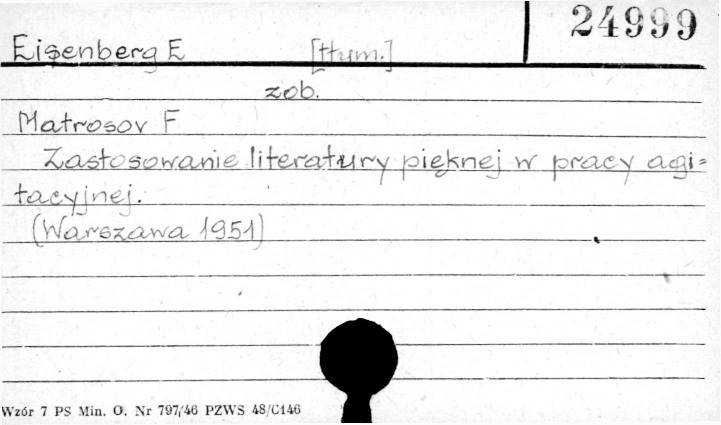 24999
Eisenberg E [tłum.]
zob.
Matrosov F
Zastosowanie literatury pięknej w pracy agi=
tacyjnej.
(Warszawa 1951)
Wzór 7 PS Min. O. Nr 797/46 PZWS 48/C146